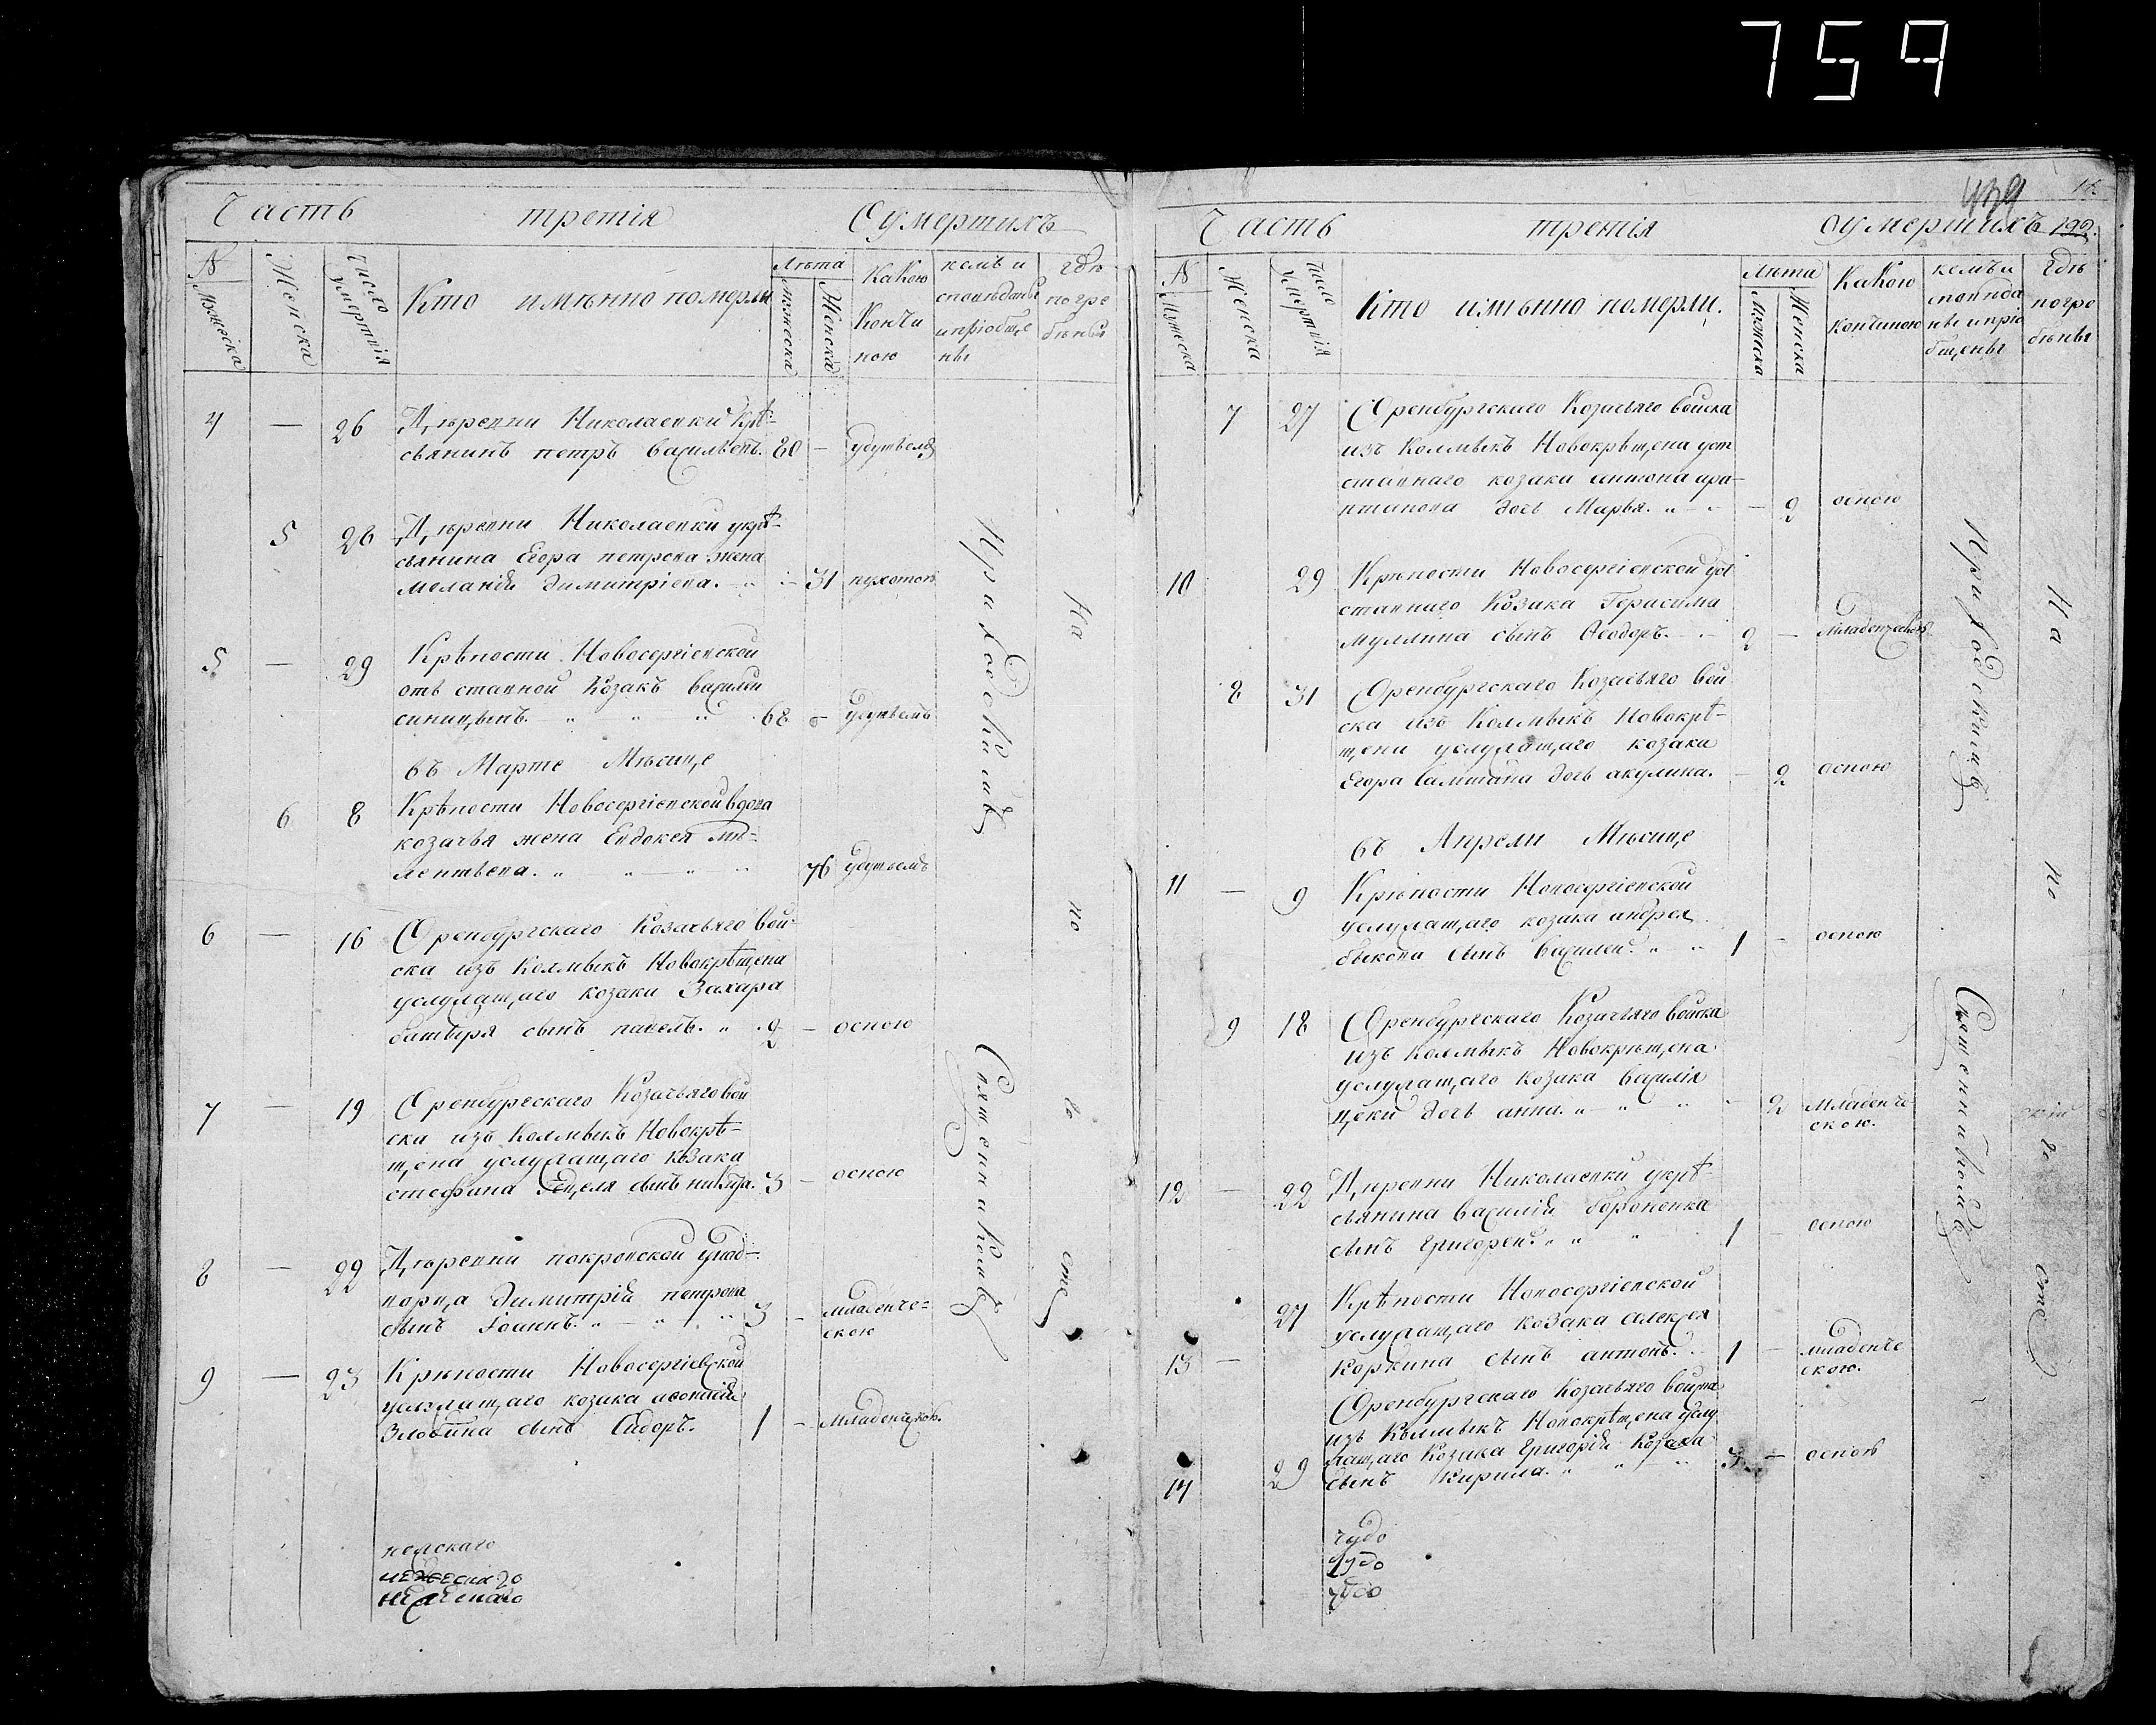 759
Часть третія О умершихъ
N Мужеска
Женска
Число умертвія
Кто имѣнно померли
Лѣта
мужеска
Женска
Какою Кончи ною
кемъ и споведаны и пріобще ны
гдѣ погре бѣны
4 — 26 Дѣревни Николаевки крѣ-
сьянинъ петръ васильевъ. 80 —
5 26 Дѣревни Николаевки укрѣ-
сьянина Егора петрова жена
Меланія димитріева. 31
5 — 29 Крѣпости Новосергіевской
отъ ставной Козакъ василей
синицынъ. 68
въ Марте Мѣсяце
6 8 Крѣпости Новосергіевской вдова
козачья жена Евдокея
лентьева. 76
6 — 16 Оренбургскаго Козачьяго вой-
ска изъ Колмыкъ Новокрѣщена
услулащаго козака Захара
батыря сынъ павелъ. 2 — оспою
7 — 19 Оренбургскаго Козачьяго вой
ска изъ Колмыкъ Новокрѣ-
щена услулащаго козака
стефана сынъ никита. 3 — оспою
8 — 22 Дѣревни покровской
димитрій петрова
сынъ Іоаннъ. 3 — младенче-
скою
9 — 23 Крѣпости Новосергіевской
услулащаго козака
Злобина сынъ Сидоръ. 1 — Младенческою.
Приходскимъ
Священникомъ
На по го сте
439
Часть третія О умершихъ 199.
N Мужеска
Женска
Число Умертвія
Кто имѣнно померли.
лѣта
Мужеска
Женска
Какою Кончиною
кемъ и споведа ны и пріо бщены
Гдѣ погре бѣны
7 27 Оренбургскаго Козачьяго войска
изъ Колмыкъ Новокрѣщена уот
ставнаго козака антона
дочь Марья. — 2 оспою
10 29 Крѣпости Новосергіевской уот
ставнаго Козака Герасима
муллина сынъ Феодоръ. 2 — младенческою
8 31 Оренбургскаго Козачьяго вой
ска изъ Колмыкъ Новокрѣ-
щена услулащаго козака
Егора дочь акулина. — 2 оспою
въ Апрели Мѣсяце
11 — 9 Крѣпости Новосергіевской
услулащаго козака андрея
быкова сынъ василей. 1 — оспою
9 18 Оренбургскаго Козачьяго войска
изъ колмыкъ Новокрѣщена
услулащаго козака василія
дочь анна. — 2 Младенче
скою.
12 — 22 Дѣревни Николаевки укрѣ-
сьянина василій
сынъ григорей. 1 — оспою
27 Крѣпости Новосергіевской
услулащаго козака алексея
13 — коркина сынъ антонъ. 1 — младенче
скою.
Оренбургскаго Козачьяго войска
изъ Колмыкъ Новокрѣщена услу
лащаго Козака Григорій
14 29 сынъ Кирила. 3 — оспою
Приходскимъ
Священникомъ
На по го сте
чудо
чудо
чудо